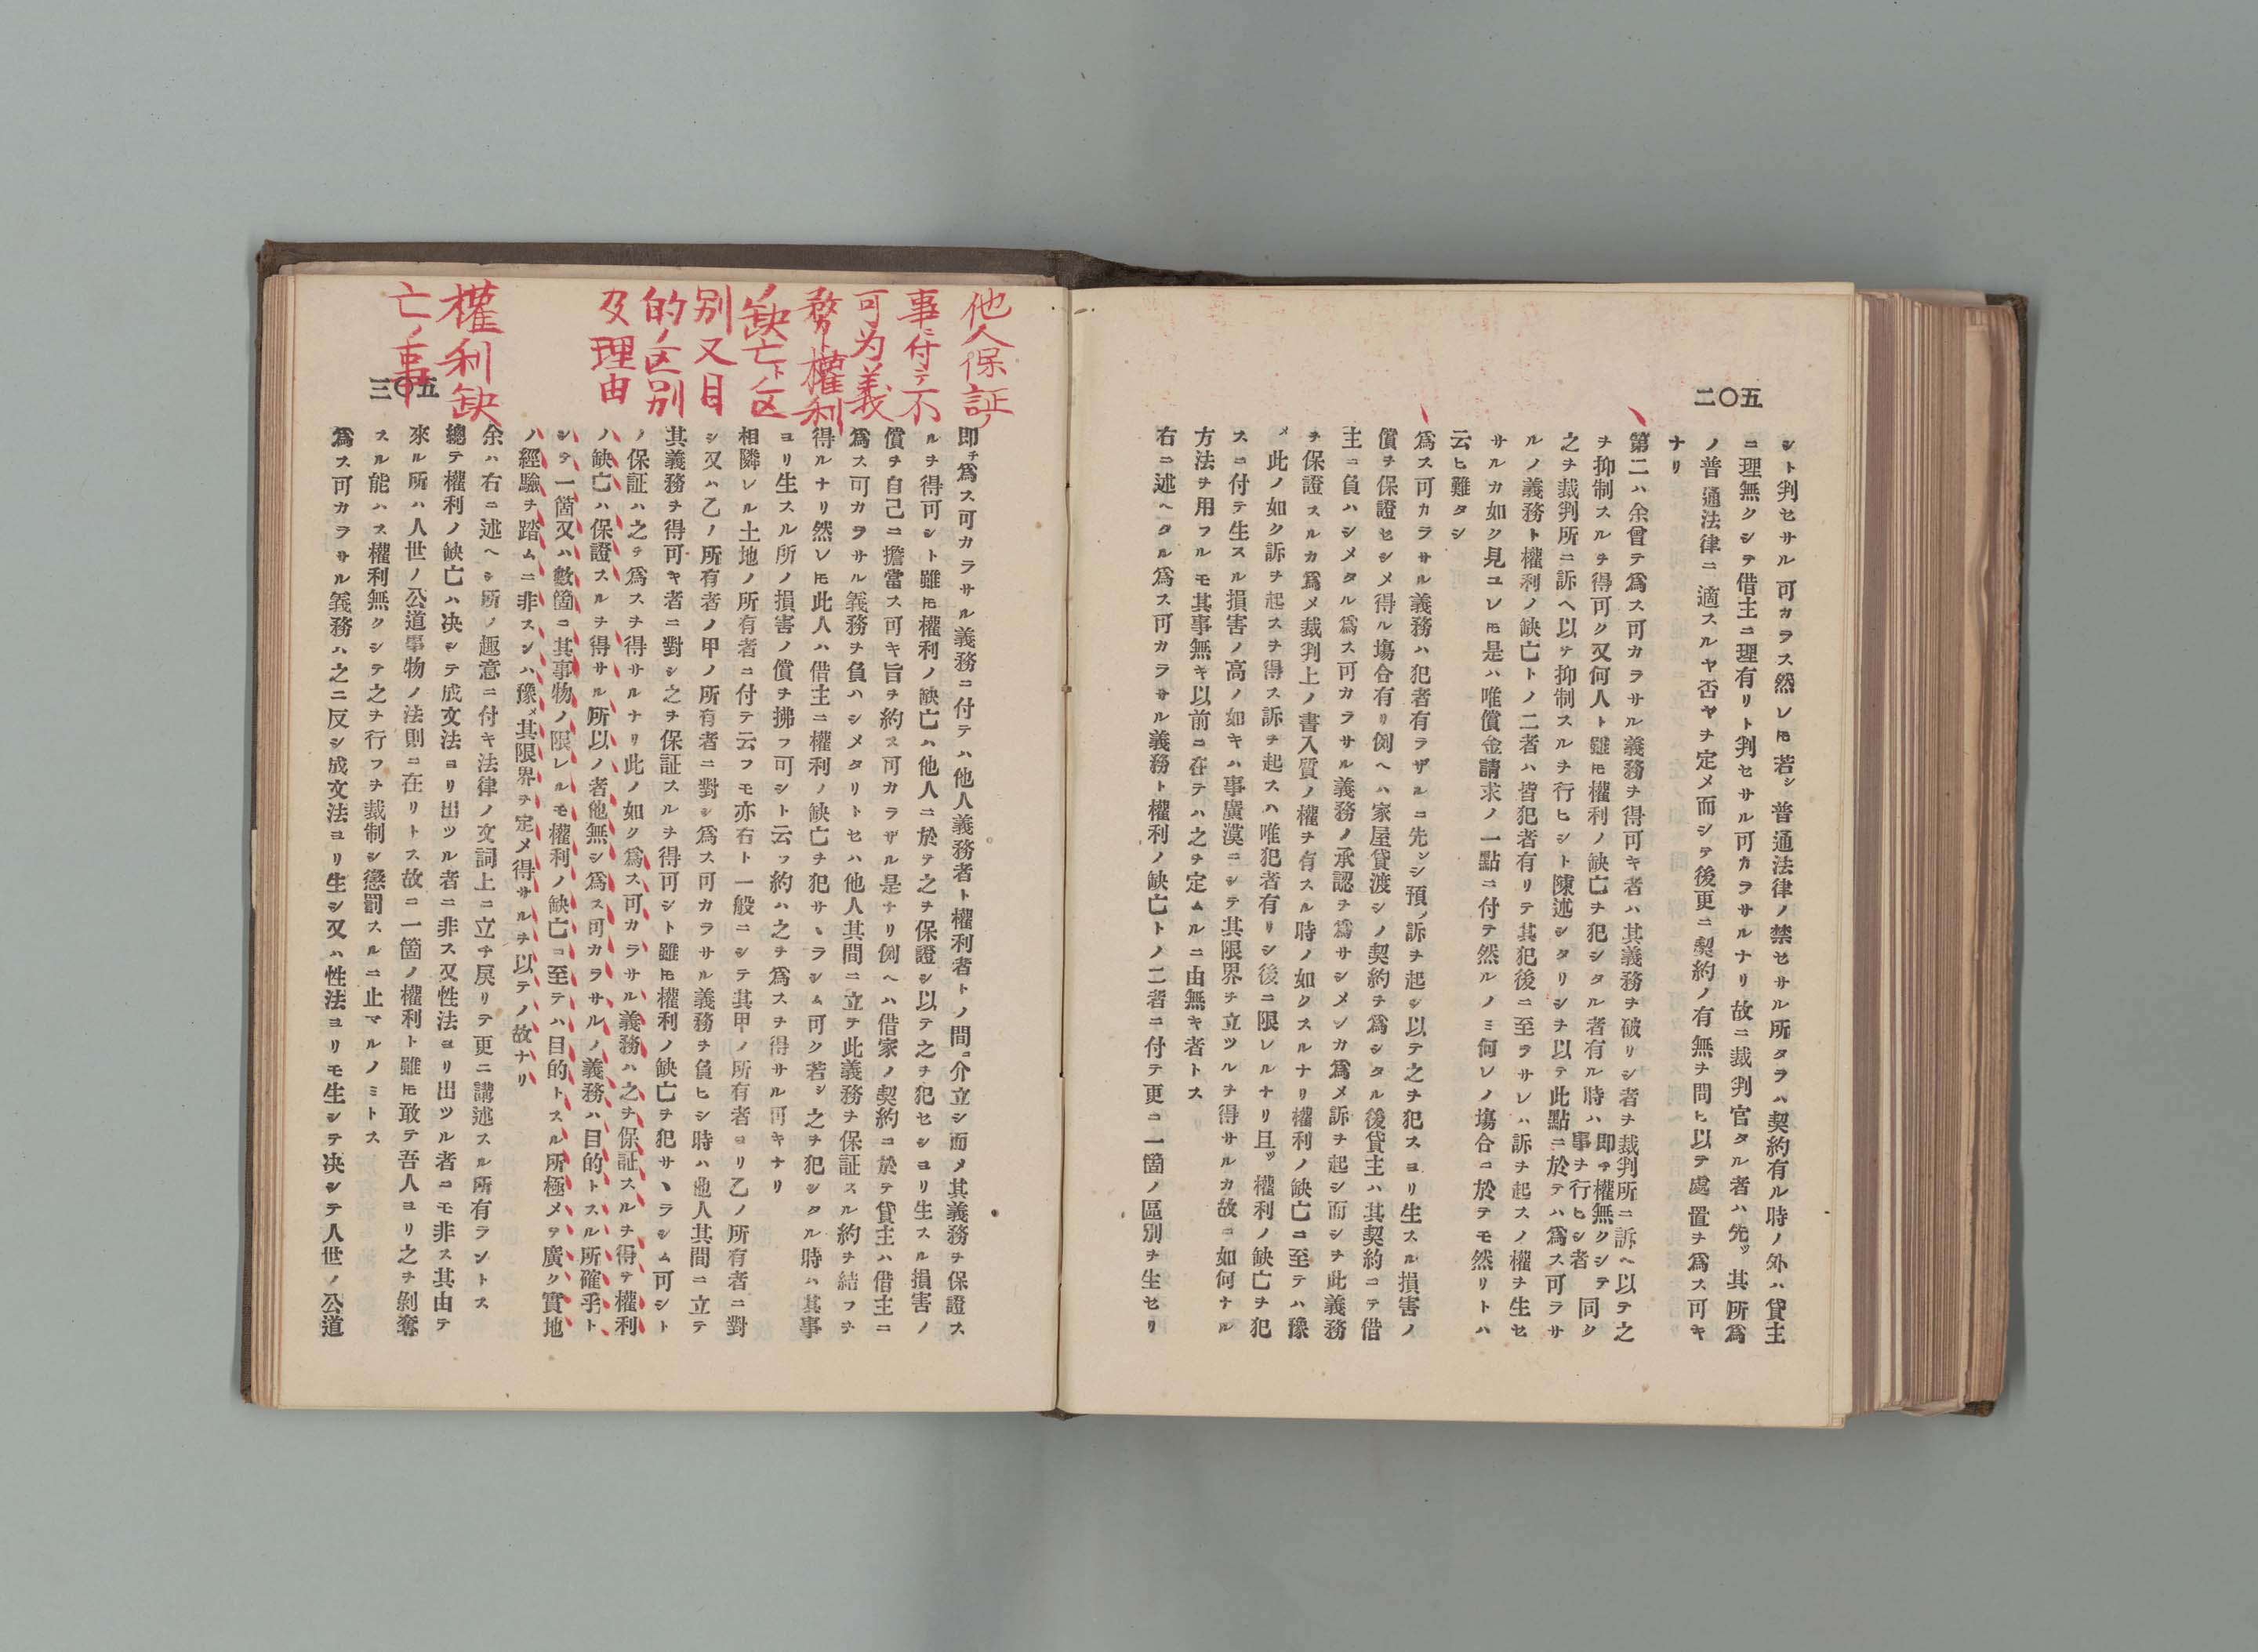 五〇二
シト判セサル可カラス然レ𪜈若シ普通法律ノ禁セサル所タラハ契約有ル時ノ外ハ貸主
ニ理無クシテ借主ニ理有リト判セサル可カラサルナリ故ニ裁判官タル者ハ先ッ其所爲
ノ普通法律ニ適スルヤ否ヤヲ定メ而シテ後更ニ契約ノ有無ヲ問ヒ以テ處置ヲ爲ス可キ
ナリ
第二ハ余曾テ爲ス可カラサル義務ヲ得可キ者ハ其義務ヲ破リシ者ヲ裁判所ニ訴ヘ以テ之
ヲ抑制スルヲ得可ク又何人ト雖𪜈權利ノ缺亡ヲ犯シタル者有ル時ハ即チ權無クシテ事ヲ行ヒシ者同ク
之ヲ裁判所ニ訴ヘ以テ抑制スルヲ行ヒシト陳述シタリシヲ以テ此點ニ於テハ爲ス可ラサ
ルノ義務ト權利ノ缺亡トノ二者ハ皆犯者有リテ其犯後ニ至ラサレハ訴ヲ起スノ權ヲ生セ
サルカ如ク見ユレ𪜈是ハ唯償金請求ノ一點ニ付テ然ルノミ何レノ塲合ニ於テモ然リトハ
云ヒ難タシ
爲ス可カラサル義務ハ犯者有ラザルニ先ンシ預メ訴ヲ起シ以テ之ヲ犯スヨリ生スル損害ノ
償ヲ保證セシメ得ル塲合有リ例ヘハ家屋貸渡シノ契約ヲ爲シタル後貸主ハ其契約ニテ借
主ニ負ハシメタル爲ス可カラサル義務ノ承認ヲ爲サシメンカ爲メ訴ヲ起シ而シテ此義務
ヲ保證スルカ爲メ裁判上ノ書入質ノ權ヲ有スル時ノ如クスルナリ權利ノ缺亡ニ至テハ豫
メ此ノ如ク訴ヲ起スヲ得ス訴ヲ起スハ唯犯者有リシ後ニ限レルナリ且ッ權利ノ缺亡ヲ犯
スニ付テ生スル損害ノ高ノ如キハ事廣漠ニシテ其限界ヲ立ツルヲ得サルカ故ニ如何ナル
方法ヲ用フルモ其事無キ以前ニ在テハ之ヲ定ムルニ由無キ者トス
右ニ述ヘタル爲ス可カラサル義務ト權利ノ缺亡トノ二者ニ付テ更ニ一箇ノ區別ヲ生セリ
他人保証ノ
事ニ付テ不
可为義
務ト權利
ノ缺亡ト区
別又目
的ノ区別
及理由
權利缺
亡ノ事
五〇三
即チ爲ス可カラサル義務ニ付テハ他人義務者ト權利者トノ間ニ介立シ而メ其義務ヲ保證ス
ルヲ得可シト雖𪜈權利ノ缺亡ハ他人ニ於テ之ヲ保證シ以テ之ヲ犯セシヨリ生スル損害ノ
償ヲ自己ニ擔當ス可キ旨ヲ約ス可カラザル是ナリ例ヘハ借家ノ契約ニ於テ貸主ハ借主ニ
爲ス可カラサル義務ヲ負ハシメタリトセハ他人其間ニ立テ此義務ヲ保証スル約ヲ結フヲ
得ルナリ然レ𪜈此人ハ借主ニ權利ノ缺亡ヲ犯サヽラシム可ク若シ之ヲ犯シタル時ハ其事
ヨリ生スル所ノ損害ノ償ヲ拂フ可シト云フ約ハ之ヲ爲スヲ得サル可キナリ
相隣レル土地ノ所有者ニ付テ云フモ亦右ト一般ニシテ其甲ノ所有者ヨリ乙ノ所有者ニ對
シ又ハ乙ノ所有者ノ甲ノ所有者ニ對シ爲ス可カラサル義務ヲ負ヒシ時ハ他人其間ニ立テ
其義務ヲ得可キ者ニ對シ之ヲ保証スルヲ得可シト雖𪜈權利ノ缺亡ヲ犯サヽラシム可シト
ノ保証ハ之ヲ爲スヲ得サルナリ此ノ如ク爲ス可カラサル義務ハ之ヲ保証スルヲ得テ權利
ノ缺亡ハ保證スルヲ得サル所以ノ者他無シ爲ス可カラサルノ義務ハ目的トスル所確乎ト
シテ一箇又ハ數箇ニ其事物ノ限レルモ權利ノ缺亡ニ至テハ目的トスル所極メテ廣ク實地
ノ經驗ヲ踏ムニ非スンハ豫メ其限界ヲ定メ得サルヲ以テノ故ナリ
余ハ右ニ述ヘシ所ノ趣意ニ付キ法律ノ文詞上ニ立チ戻リテ更ニ講述スル所有ラントス
總テ權利ノ缺亡ハ决シテ成文法ヨリ出ツル者ニ非ス又性法ヨリ出ツル者ニモ非ス其由テ
來ル所ハ人世ノ公道事物ノ法則ニ在リトス故ニ一箇ノ權利ト雖𪜈敢テ吾人ヨリ之ヲ剝奪
スル能ハス權利無クシテ之ヲ行フヲ裁制シ懲罰スルニ止マルノミトス
爲ス可カラサル義務ハ之ニ反シ成文法ヨリ生シ又ハ性法ヨリモ生シテ决シテ人世ノ公道